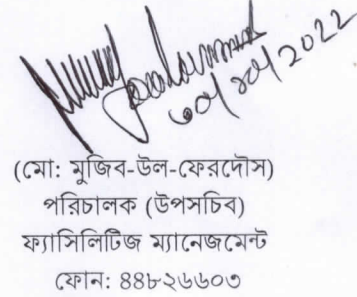 ৩০/১০/2022
(মো: মুজিব-উল-ফেরদৌস)
পরিচালক (উপসচিব)
ফ্যাসিলিটিজ ম্যানেজমেন্ট
ফোন: ৪৪৮২৬৬০৩